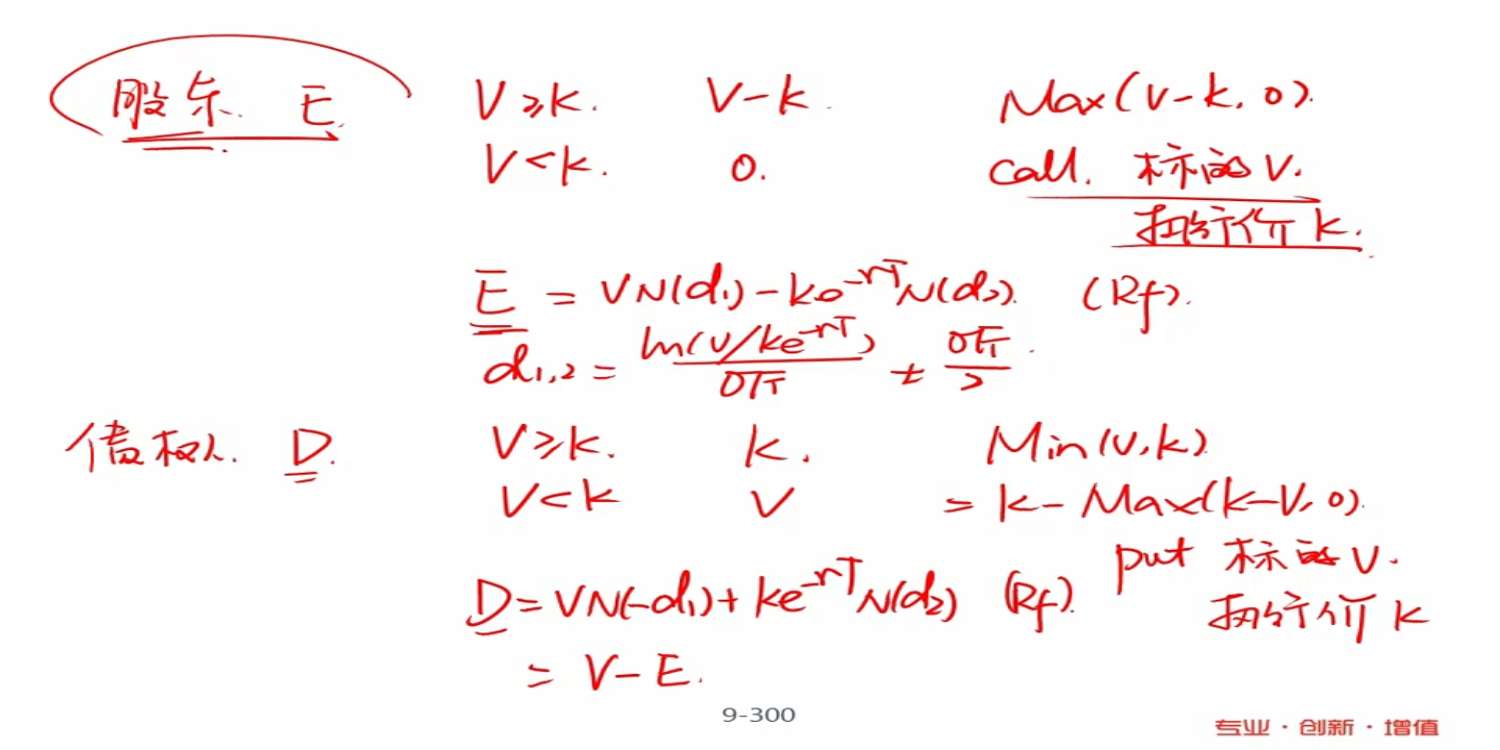 股东. E. V≥k. V-k. Max(V-k, 0).
V<k. 0. call. 标的V.
执行价 k.
E = VN(d₁) - ke^{-rT}N(d₂). (Rf).
d₁,₂ = ln(V/ke^{-rT}) / σ√T ± σ√T / 2.
债权人. D. V≥k. k. Min(V,k)
V<k V = k - Max(k-V, 0).
put 标的 V.
D = VN(-d₁) + ke^{-rT}N(d₂) (Rf). 执行价 k
= V - E.
9-300
专业·创新·增值